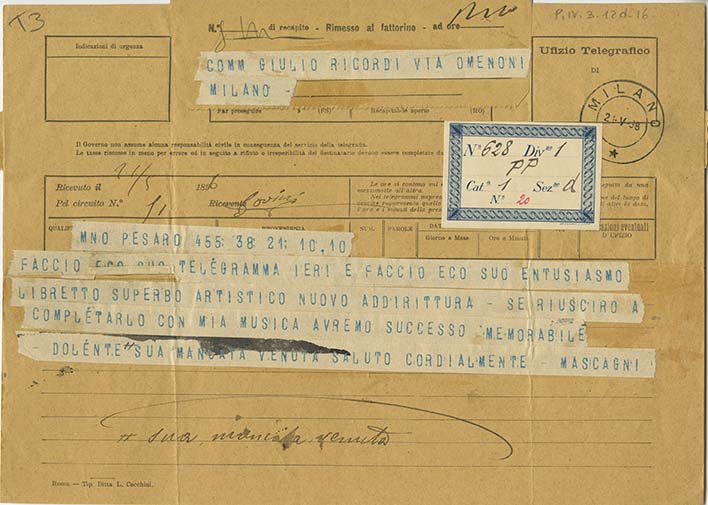 T3
P.IV.3-12d-16
N.° di recapito - Rimesso al fattorino - ad ore
Indicazioni di urgenza
COMM GIULIO RICORDI VIA OMENONI
MILANO -
Far proseguire (FS) Recapito aperto (RO)
Ufizio Telegrafico
DI
MILANO
Il Governo non assume alcuna responsabilità civile in conseguenza del servizio della telegrafia.
Le tasse riscosse in meno per errore od in seguito a rifiuto o irreperibilità del destinatario devono essere completate
N° 628 Div.ne 1
PP
Cat.a 1 Sez.e d
N° 20
Ricevuto il 21/5 1896
Pel circuito N.° 11 Ricevente
QUALIFICA PROVENIENZA NUM. PAROLE DATA
Giorno e Mese Ore e Minuti
eventuali
D'UFIZIO
MNO PESARO 455 38 21: 10,10
FACCIO ECO SUO TELEGRAMMA IERI E FACCIO ECO SUO ENTUSIASMO
LIBRETTO SUPERBO ARTISTICO NUOVO ADDIRITTURA - SE RIUSCIRO A
COMPLETARLO CON MIA MUSICA AVREMO SUCCESSO MEMORABILE
- DOLENTE # SUA MANCATA VENUTA SALUTO CORDIALMENTE - MASCAGNI
# sua mancata venuta
Roma - Tip. Ditta L. Cecchini.